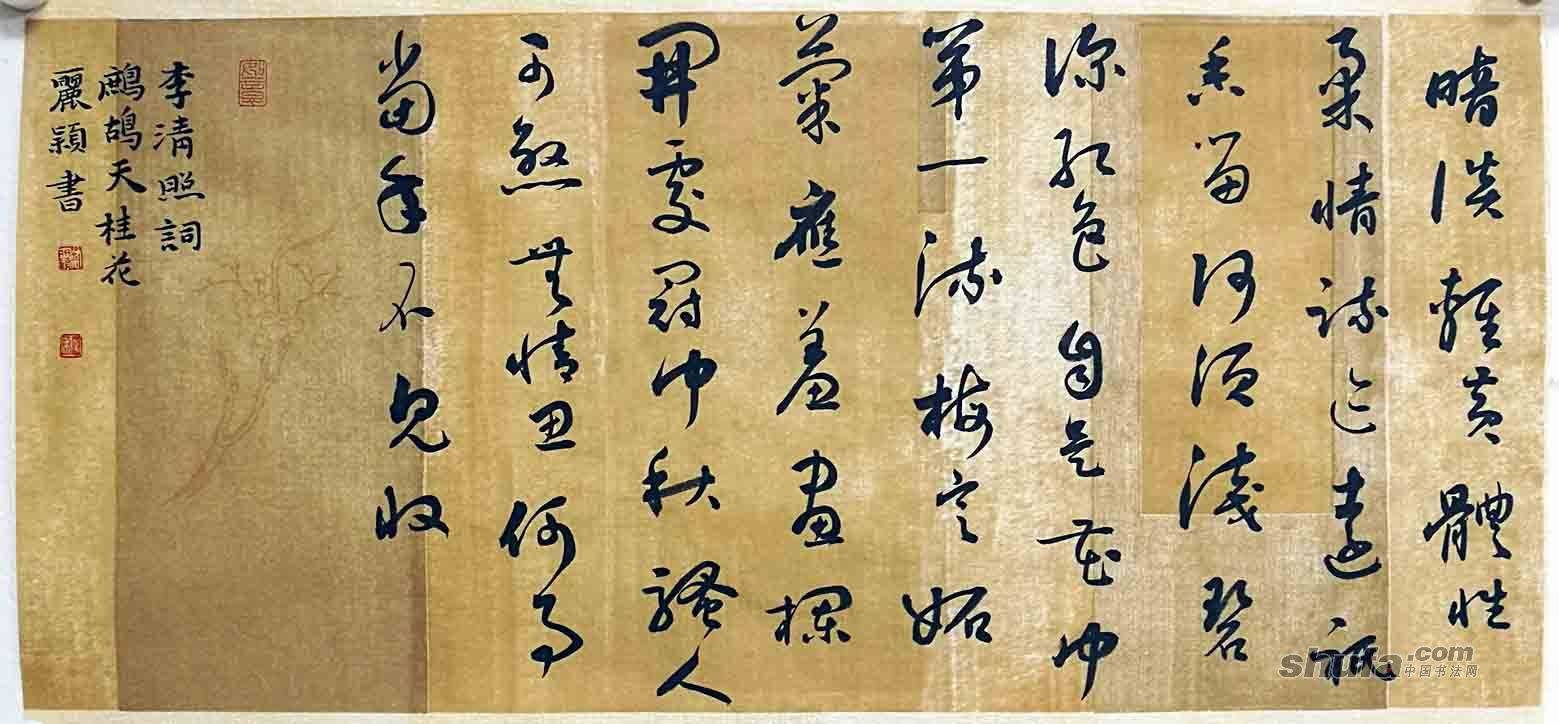 暗淡輕黃體性
柔情疏迹遠祗
香留何須淺碧
深紅色自是花中
第一流梅定妒
菊應羞畫欄
開處冠中秋騷人
可煞無情思何事
當年不見收
李清照詞
鷓鴣天桂花
麗穎書
shufa.com
中国书法网